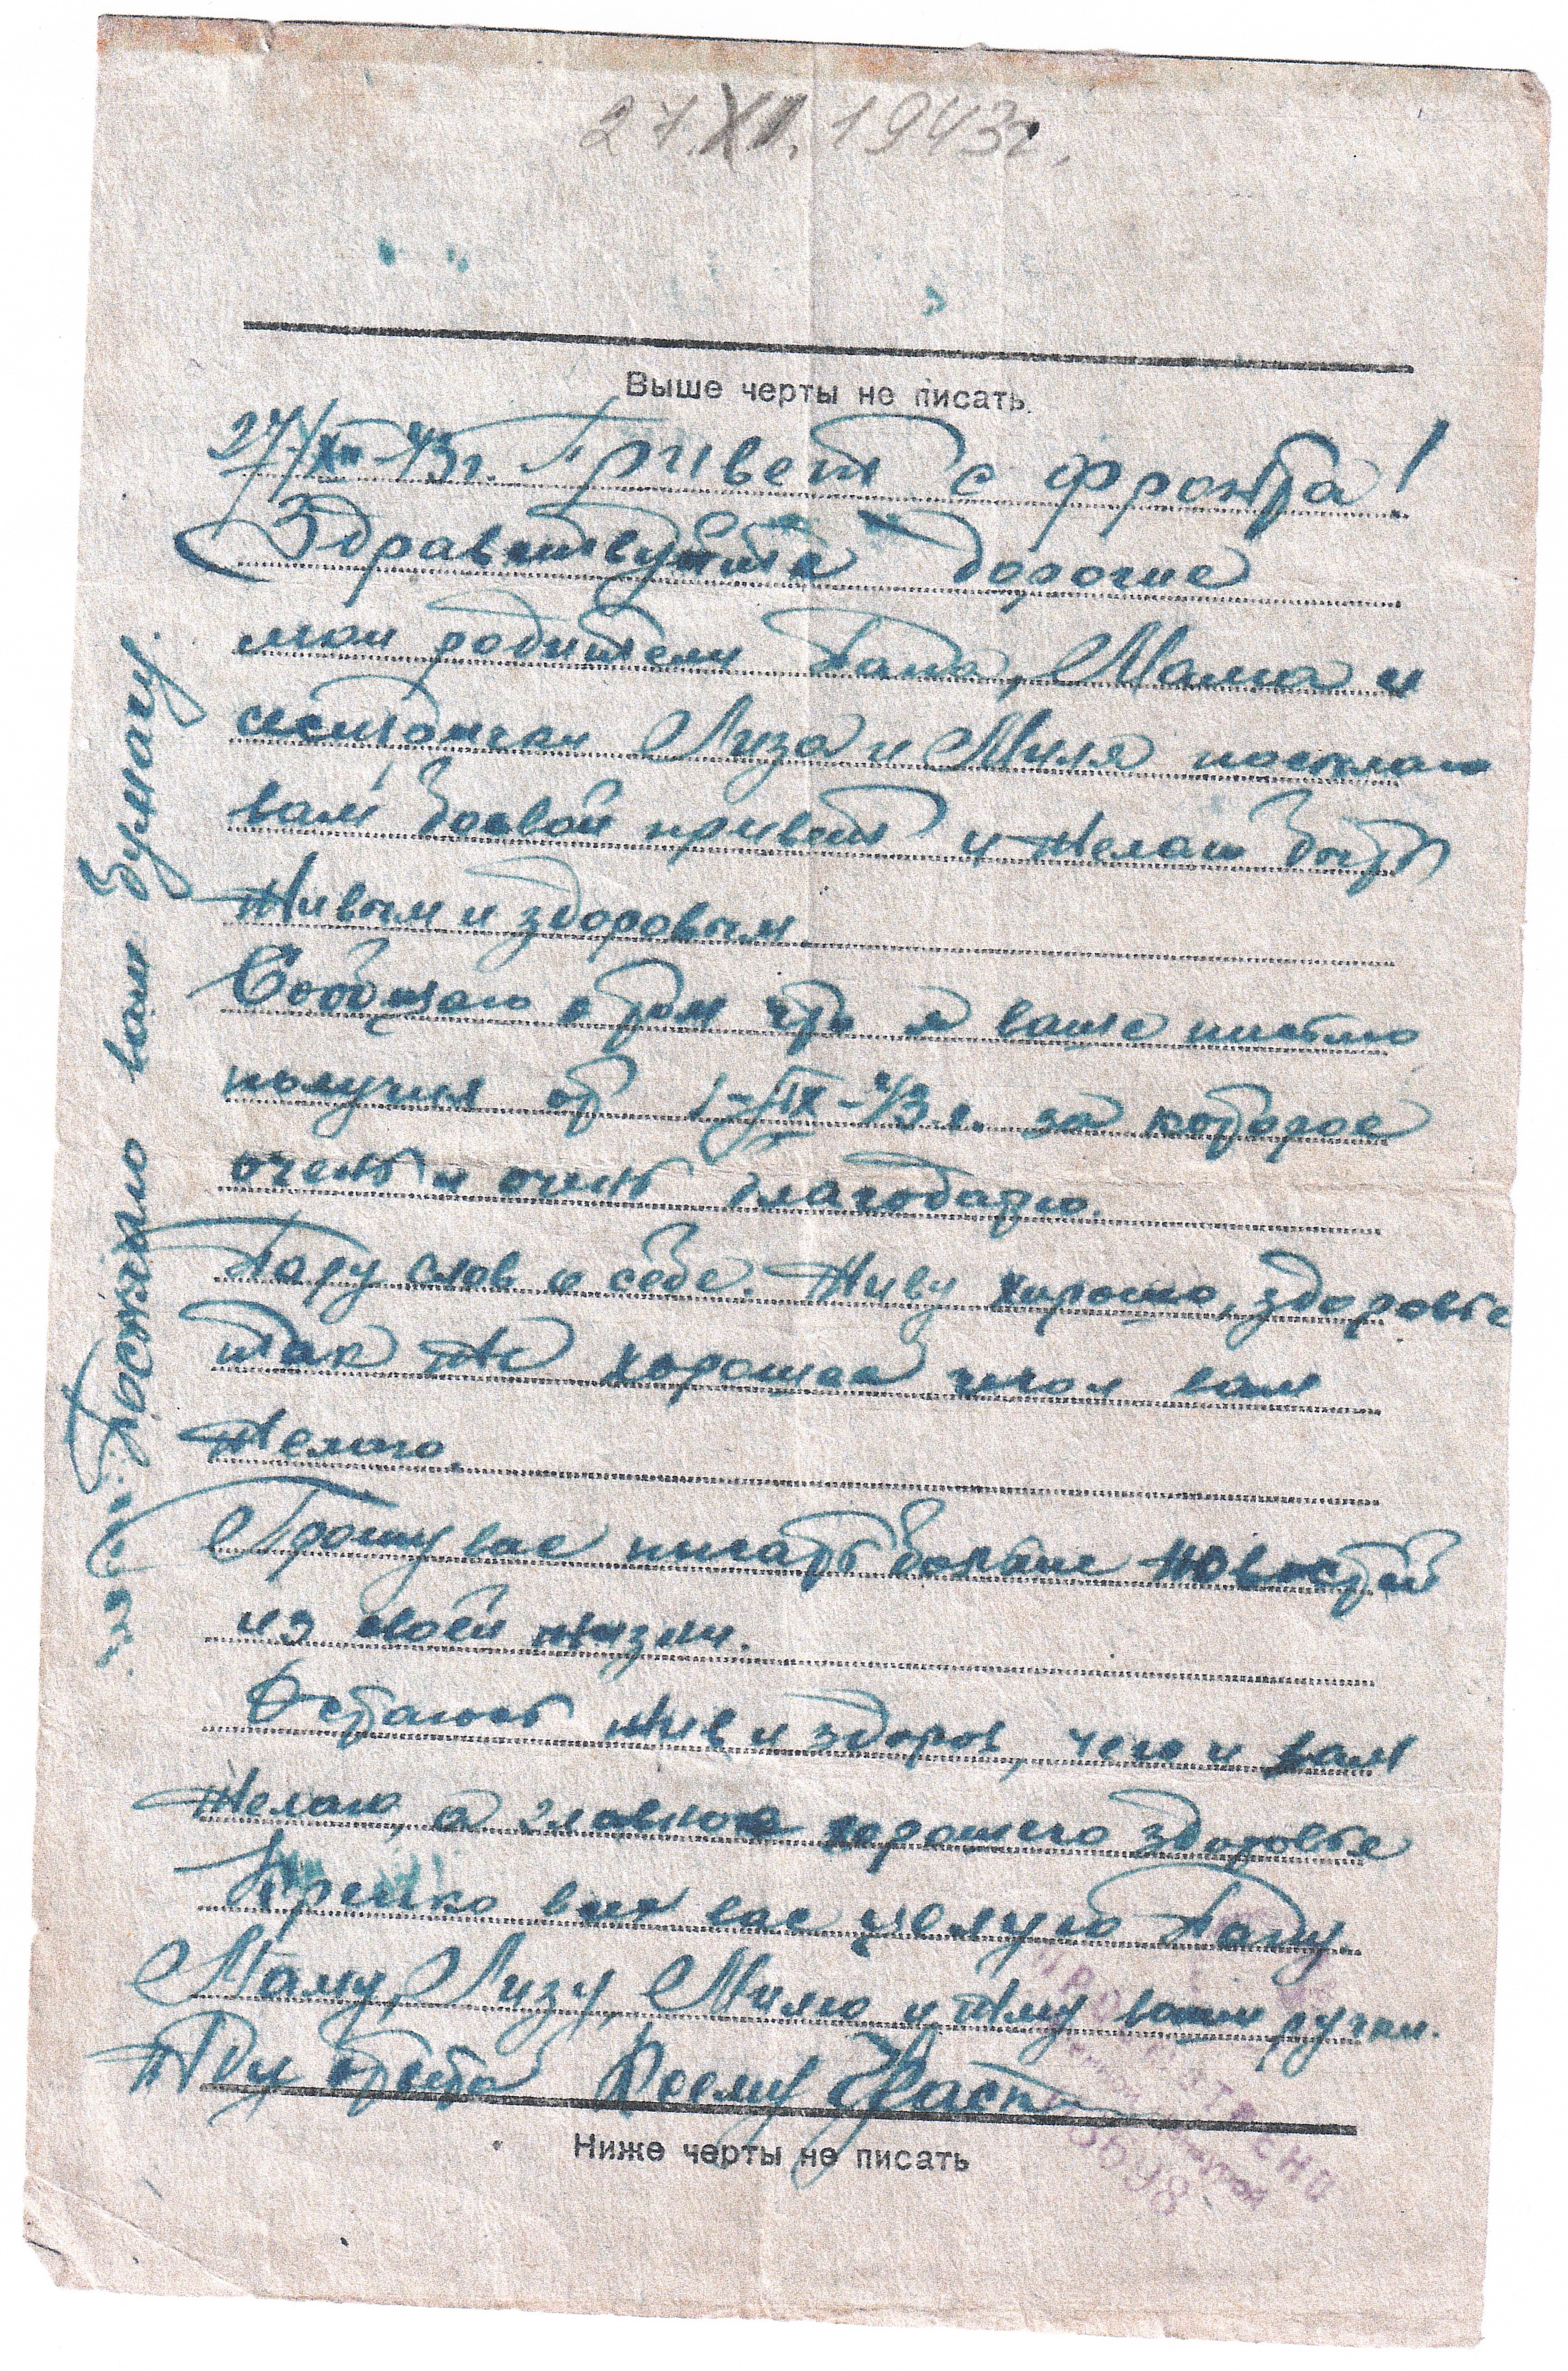 27.XII.1943г.
Выше черты не писать.
27/XII-43г. Привет с фронта!
Здравствуйте дорогие
мои родители Папа, Мама и
сестрички Лиза и Миля посылаю
вам боевой привет и желаю быть
живым и здоровым.
Сообщаю о том что я ваше письмо
получил от 1-IX-43 г. за которое
очень и очень благодарю.
Пару слов о себе. Живу хорошо, здоровье
так же хорошее чего и вам
желаю.
Прошу вас писать больше новостей
из своей жизни.
Остаюсь жив и здоров, чего и вам
желаю, а главное хорошего здоровья
Крепко всех вас целую Папу
Маму, Лизу, Милю и жму ваши ручки.
Жду ответа
Ниже черты не писать
Посылаю вам бумагу.
ПРОСМОТРЕНО
Военной Цензурой